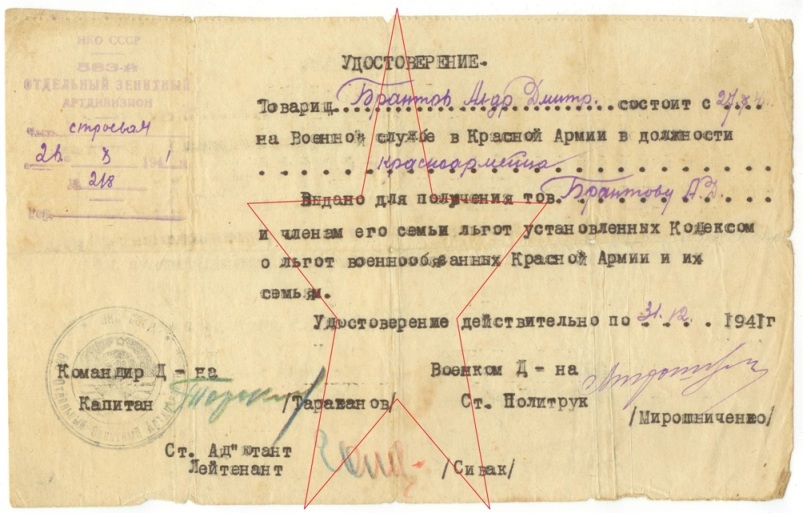 НКО СССР
583-й
ОТДЕЛЬНЫЙ ЗЕНИТНЫЙ
АРТДИВИЗИОН
Часть строевая
1941
№ 218
Гор.
УДОСТОВЕРЕНИЕ.
Товарищ Брантов Ал-др Дмитр. состоит с 27
на Военной службе в Красной Армии в должности
красноармейца
Выдано для получения тов. Брантову А.Д.
и членам его семьи льгот установленных Кодексом
о льгот военнообязанных Красной Армии и их
семьям.
Удостоверение действительно по 31.12. 1941г
Командир Д-на
Капитан /Тараканов/
Военком Д-на
Ст. Политрук
/Мирошниченко/
Ст. Ад"ютант
Лейтенант /Сивак/